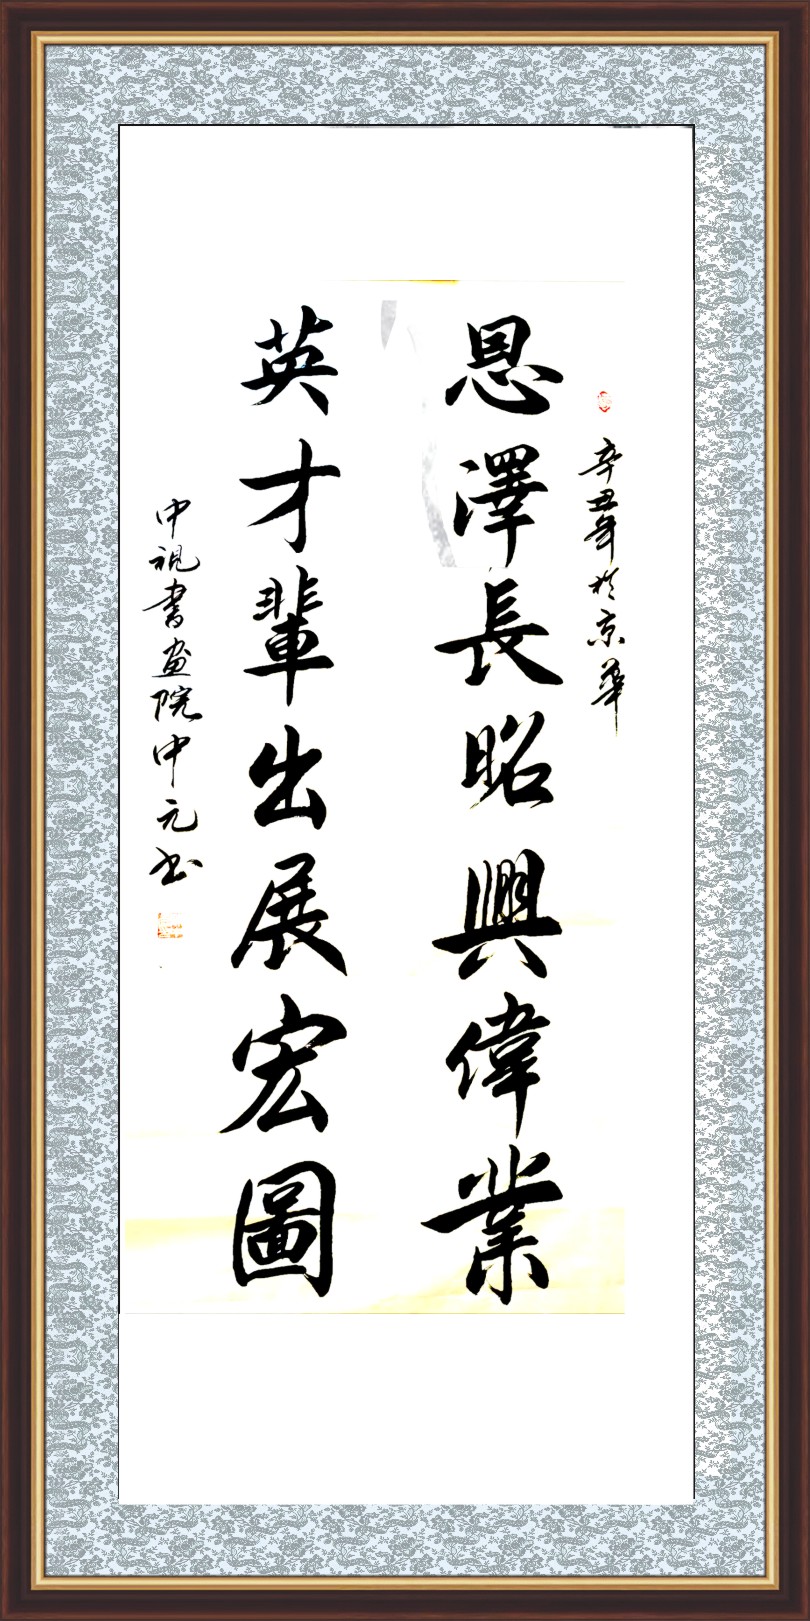 辛丑年於京華
恩澤長昭興偉業
英才輩出展宏圖
中视書画院中元书